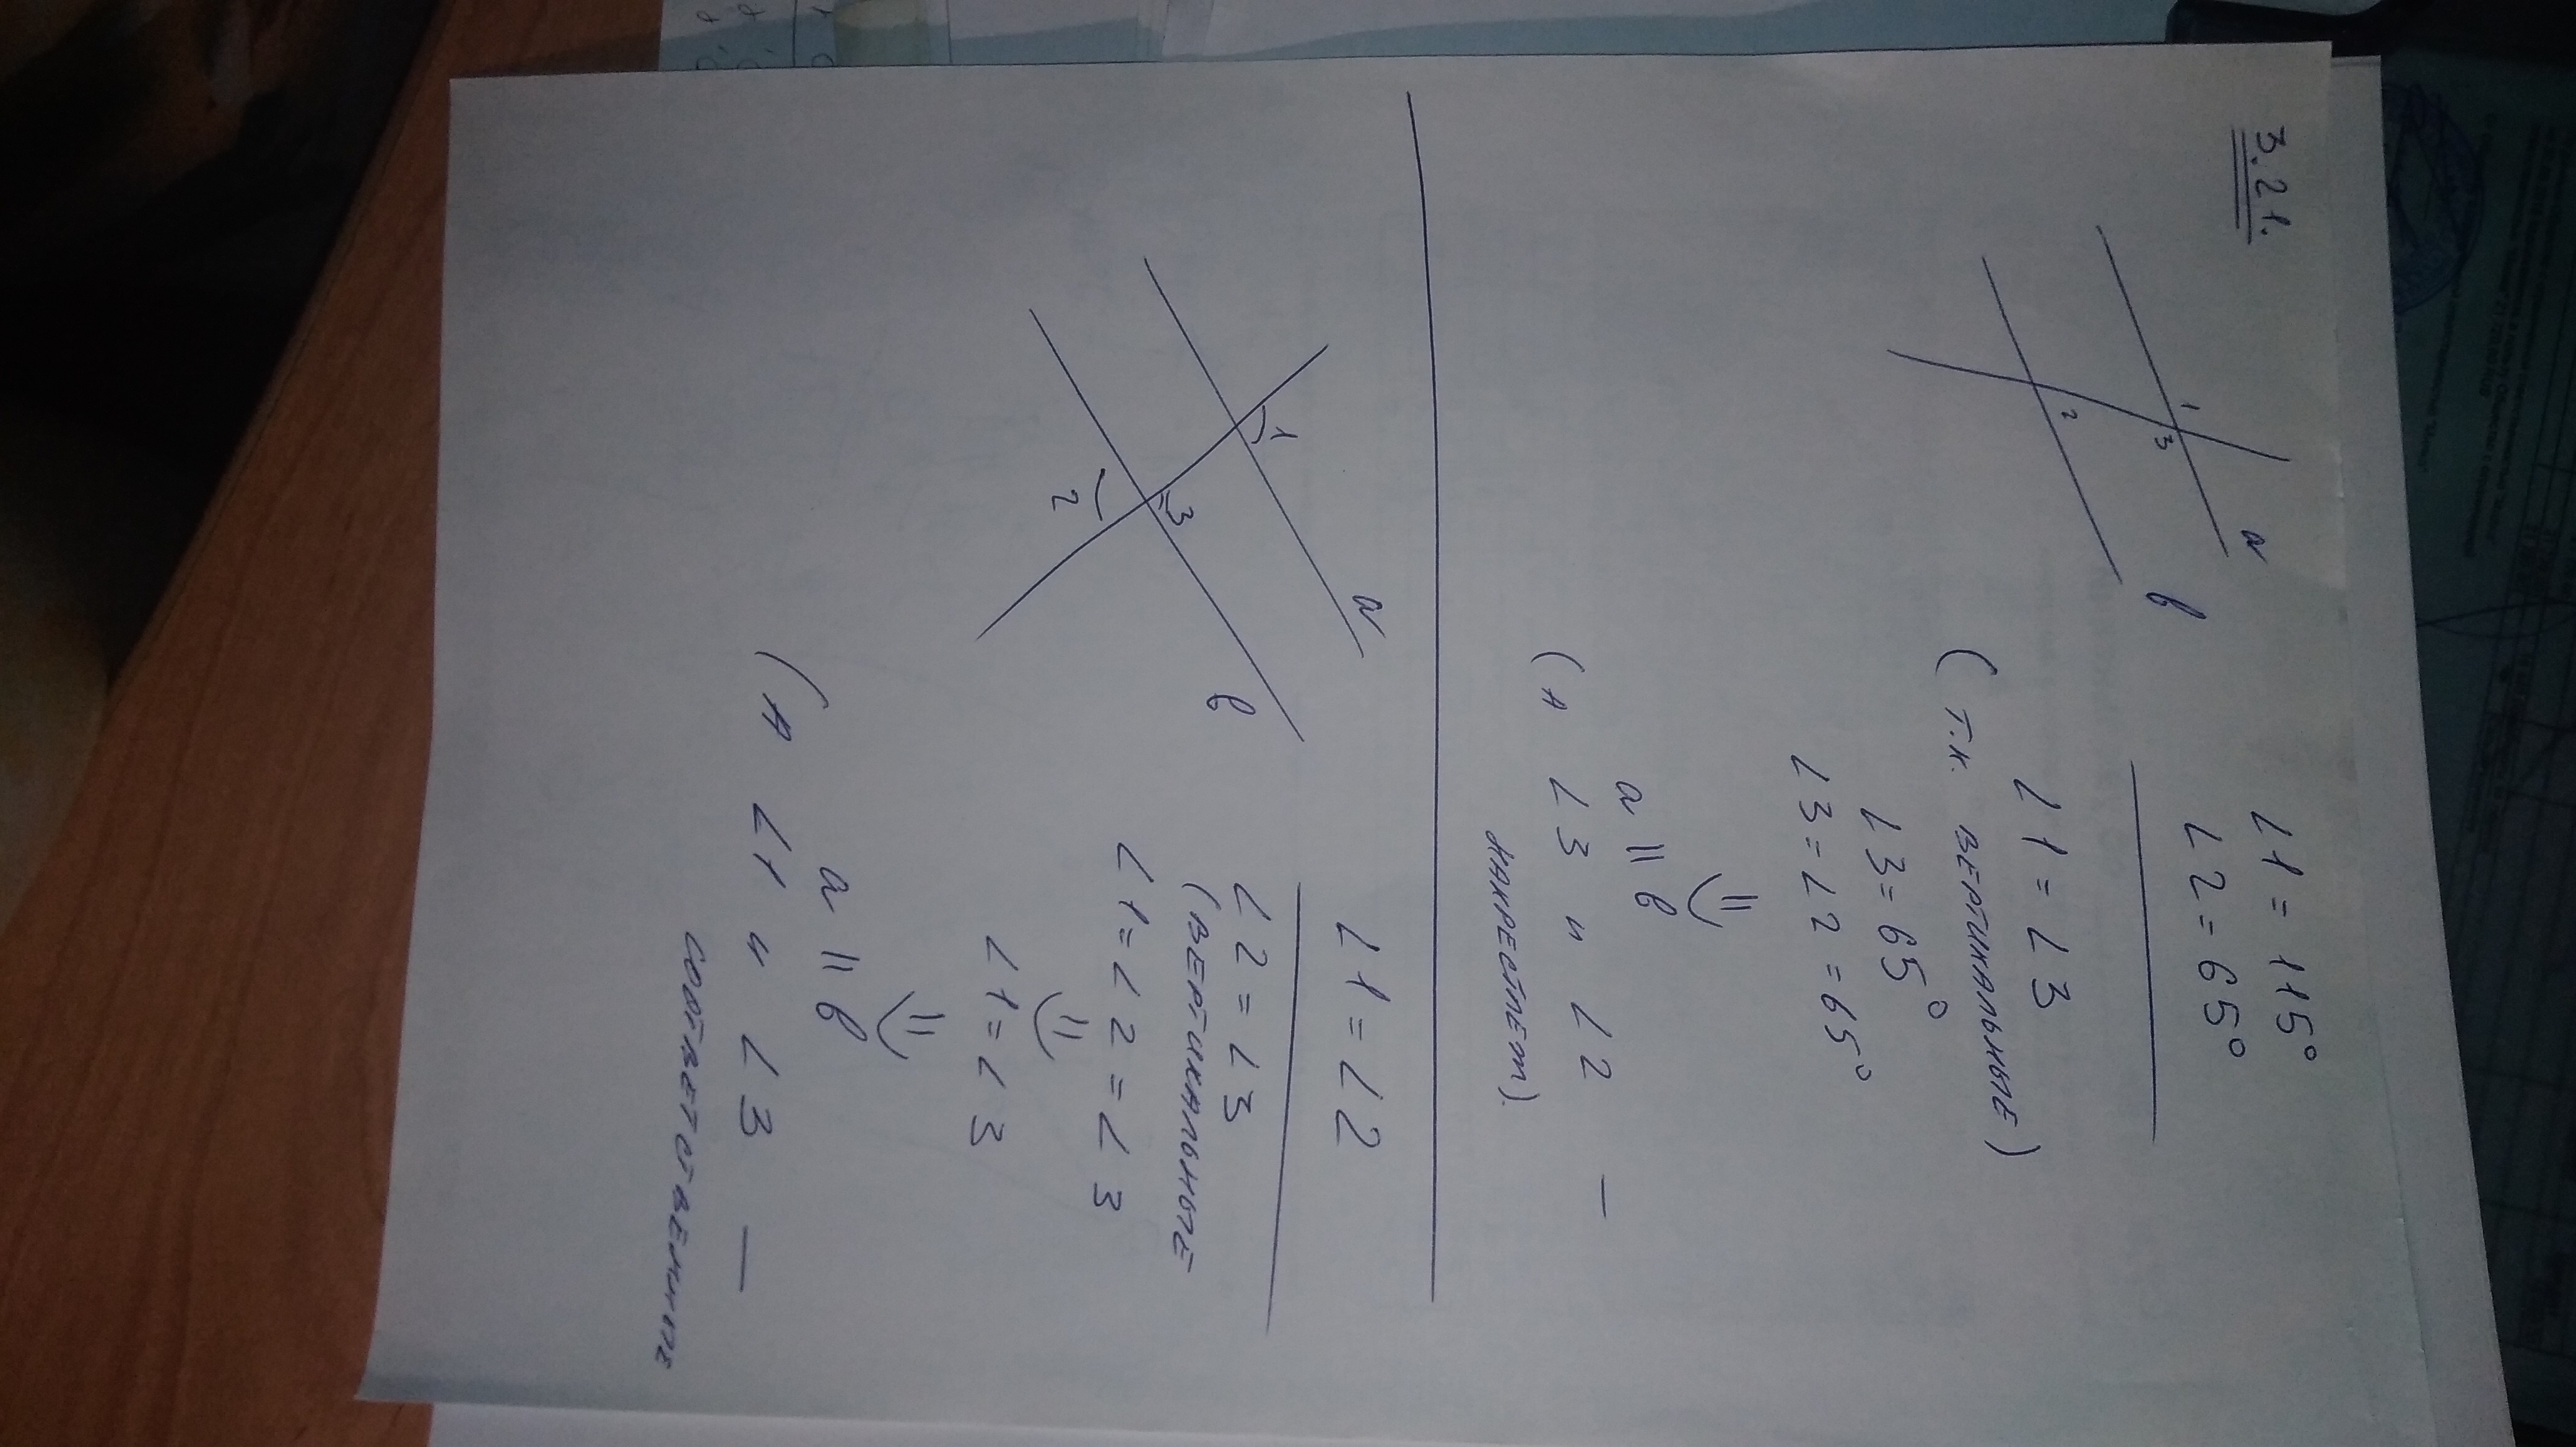 3.21.
1
3
2
a
b
∠1 = 115°
∠2 = 65°
∠1 = ∠3
(т.к. ВЕРТИКАЛЬНЫЕ)
∠3 = 65°
∠3 = ∠2 = 65°
⇓
a || b
(А ∠3 и ∠2 —
НАКРЕСТЛЕЖ).
1
3
2
a
b
∠1 = ∠2
∠2 = ∠3
(ВЕРТИКАЛЬНЫЕ
∠1 = ∠2 = ∠3
⇓
∠1 = ∠3
⇓
a || b
(А ∠1 и ∠3 —
СООТВЕТСТВЕННЫЕ